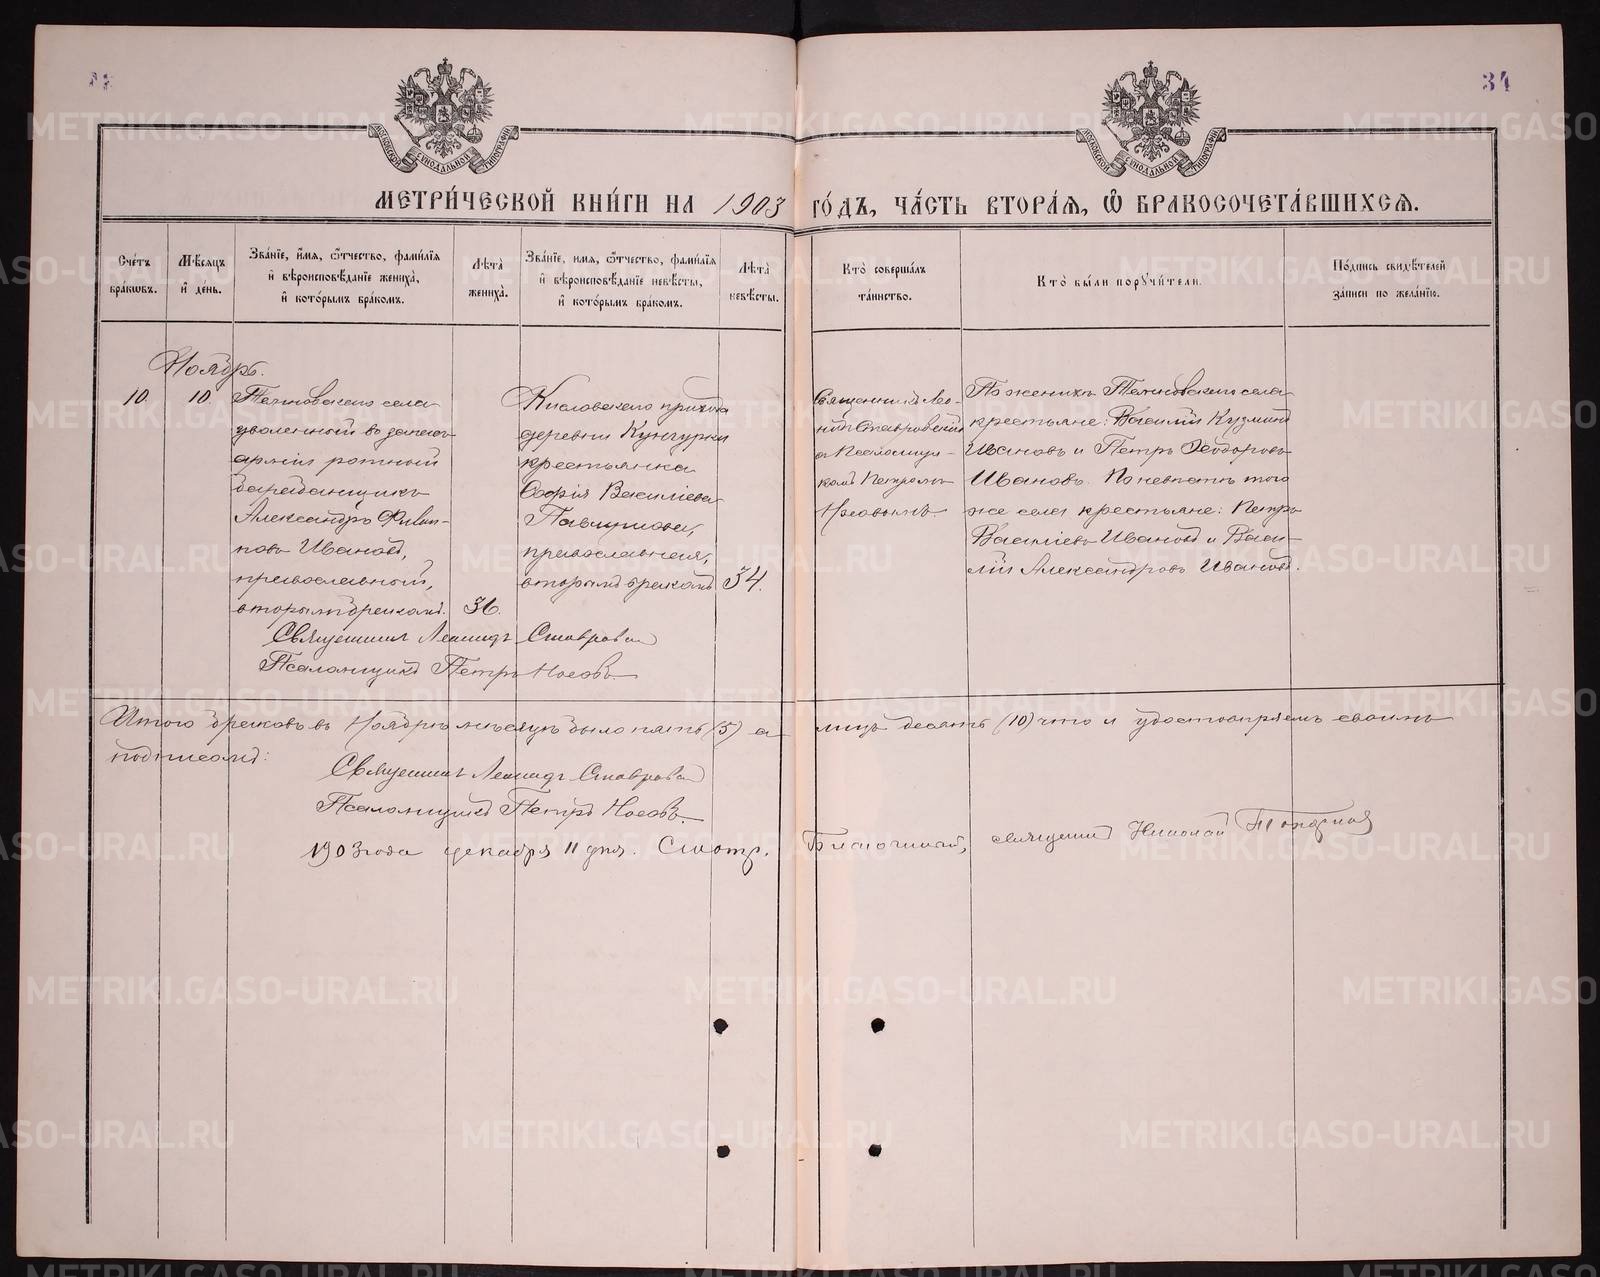 34
МОСКОВСКОЙ СѴНОДАЛЬНОЙ ТИПОГРАФІИ
МОСКОВСКОЙ СѴНОДАЛЬНОЙ ТИПОГРАФІИ
МЕТРИ́ЧЕСКОЙ КНИ́ГИ НА 1903 ГО́ДЪ, ЧА́СТЬ ВТОРА́Я, Ѿ БРАКОСОЧЕТА́ВШИХСЯ.
Сче́тъ
бра́кѡвъ.
Мѣ́сяцъ
и҆ де́нь.
Зва́нїе, и҆́мя, ѻ҆́тчество, фами́лїя
и҆ вѣроисповѣ́данїе жениха̀,
и҆ кото́рымъ бра́комъ.
Лѣ́та
жениха̀.
Зва́нїе, и҆́мя, ѻ҆́тчество, фами́лїя
и҆ вѣроисповѣ́данїе невѣ́сты,
и҆ кото́рымъ бра́комъ.
Лѣ́та
невѣ́сты.
Кто̀ соверша́лъ
та́инство.
Кто̀ бы́ли порꙋчи́тели.
По́дпись свидѣ́телей
за́писи по жела́нїю.
Ноябрь.
10. 10.
села
уволенный въ запасъ
арміи ротный
барабанщикъ
Александръ Филип-
повъ Ивановъ,
православный,
вторымъ бракомъ. 36.
Кисловскаго прихода
деревни
крестьянка
Софія Васильева
православная,
вторымъ бракомъ 34.
Священникъ Лео-
нидъ Ставровскій
съ Псаломщи-
комъ Петромъ
Носовымъ.
По женихѣ села
крестьяне: Василій Кузминъ
Ивановъ и Петръ Ѳеодоровъ
Ивановъ. По невѣстѣ того
же села крестьяне: Петръ
Васильевъ Ивановъ и Васи-
лій Александровъ Ивановъ.
Священникъ Леонидъ Ставровскій
Псаломщикъ Петръ Носовъ.
Итого браковъ въ Ноябрѣ мѣсяцѣ было пять (5) а лицъ десять (10) что и удостовѣряемъ своимъ
подписомъ:
Священникъ Леонидъ Ставровскій
Псаломщикъ Петръ Носовъ.
1903 года декабря 11 дня. Смотр. Благочинный, священникъ Николай
METRIKI.GASO-URAL.RU